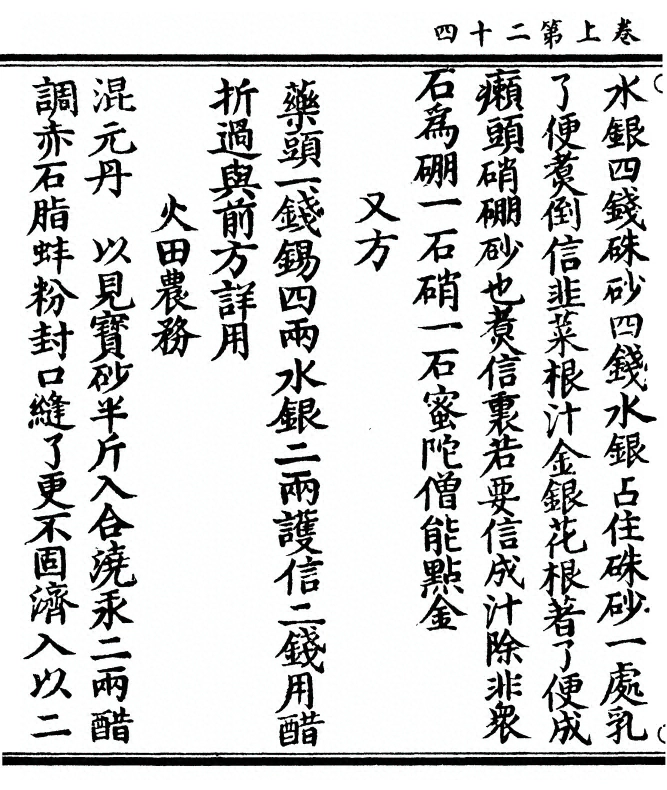 卷上第二十四
水銀四錢硃砂四錢水銀占住硃砂一處乳
了便煑倒信韮菜根汁金銀花根著了便成
癩頭硝硼砂也煑信裏若要信成汁除非眾
石為硼一石硝一石蜜陀僧能點金
又方
藥頭一錢錫四兩水銀二兩護信二錢用醋
折過與前方詳用
火田農務
混元丹 以見寶砂半斤入合澆汞二兩醋
調赤石脂蚌粉封口縫了更不固濟入以二